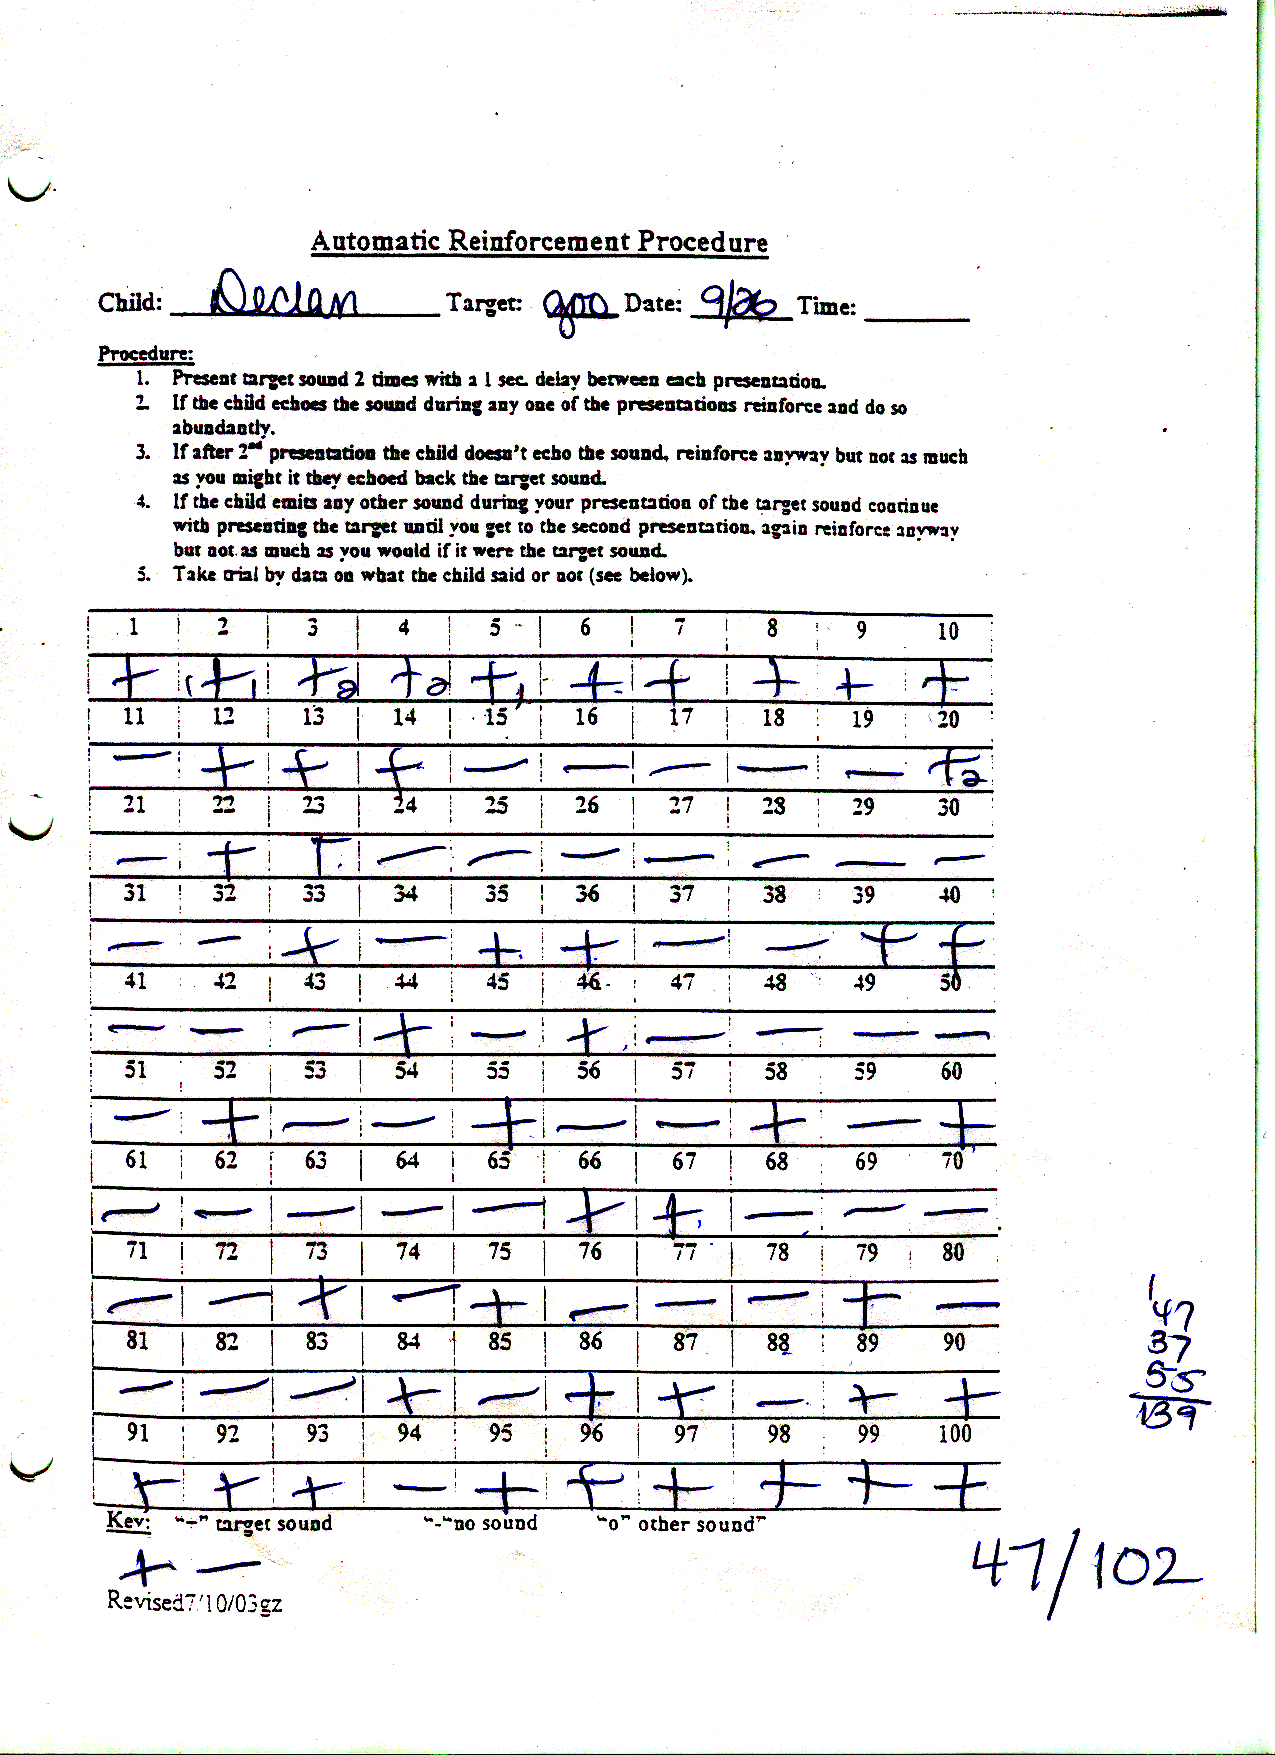 Automatic Reinforcement Procedure
Child: Declan Target: goo Date: 9/26 Time:
Procedure:
1. Present target sound 2 times with a 1 sec. delay between each presentation.
2. If the child echoes the sound during any one of the presentations reinforce and do so
abundantly.
3. If after 2nd presentation the child doesn't echo the sound, reinforce anyway but not as much
as you might it they echoed back the target sound.
4. If the child emits any other sound during your presentation of the target sound continue
with presenting the target until you get to the second presentation, again reinforce anyway
but not as much as you would if it were the target sound.
5. Take trial by data on what the child said or not (see below).
1 2 3 4 5 6 7 8 9 10
+ +1 +2 +2 +1 + + + + +
11 12 13 14 15 16 17 18 19 20
- + + + - - - - - +2
21 22 23 24 25 26 27 28 29 30
- + + - - - - - - -
31 32 33 34 35 36 37 38 39 40
- - + - + + - - + +
41 42 43 44 45 46 47 48 49 50
- - - + - + - - - -
51 52 53 54 55 56 57 58 59 60
- + - - + - - + - +
61 62 63 64 65 66 67 68 69 70
- - - - - + + - - -
71 72 73 74 75 76 77 78 79 80
- - + - + - - - + -
81 82 83 84 85 86 87 88 89 90
- - - + - + + - + +
91 92 93 94 95 96 97 98 99 100
+ + + - + + + + + +
1
47
37
55
139
Key: "-" target sound "-"no sound "o" other sound"
+ -
47/102
Revised7/10/03gz